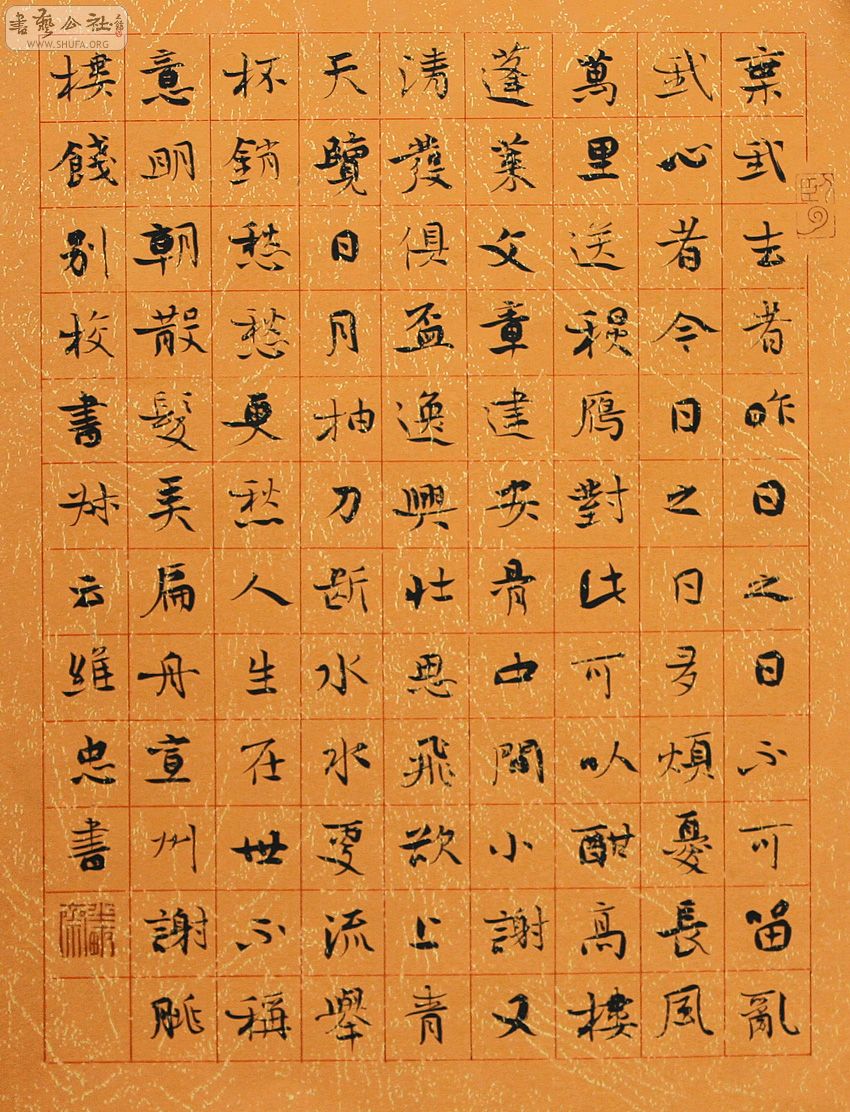 書藝公社
WWW.SHUFA.ORG
棄我去者昨日之日不可留亂
我心者今日之日多煩憂長風
萬里送秋雁對此可以酣高樓
蓬萊文章建安骨中間小謝又
清發俱盃逸興壯思飛欲上青
天覽日月抽刀斷水水更流舉
杯銷愁愁更愁人生在世不稱
意明朝散髮弄扁舟宣州謝朓
樓餞別校書叔云維忠書